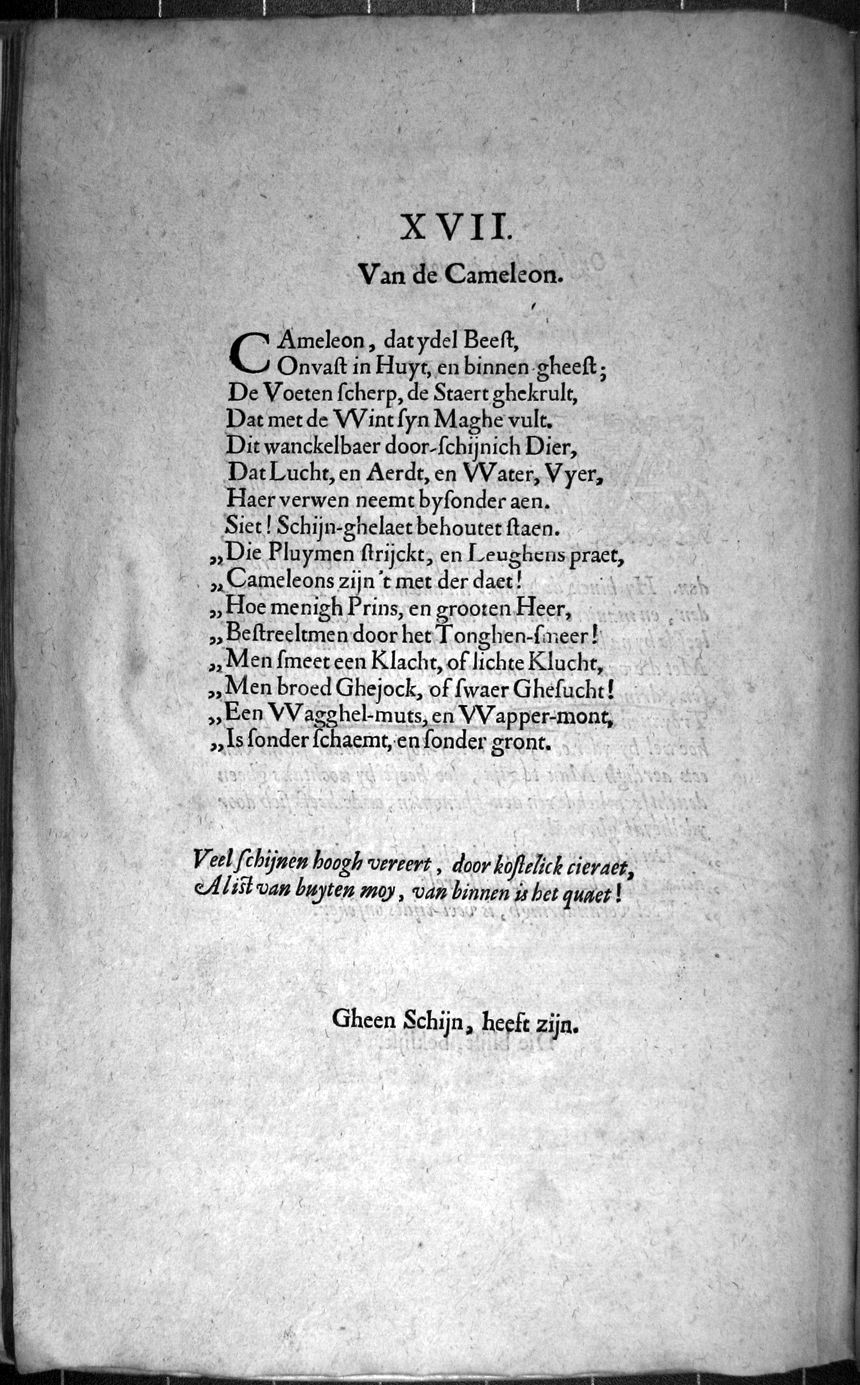 XVII.
Van de Cameleon.
CAmeleon, dat ydel Beest,
Onvast in Huyt, en binnen gheest;
De Voeten scherp, de Staert ghekrult,
Dat met de Wint syn Maghe vult.
Dit wanckelbaer door-schijnich Dier,
Dat Lucht, en Aerdt, en Water, Vyer,
Haer verwen neemt bysonder aen.
Siet! Schijn-ghelaet behoutet staen.
„Die Pluymen strijckt, en Leughens praet,
„Cameleons zijn 't met der daet!
„Hoe menigh Prins, en grooten Heer,
„Bestreeltmen door het Tonghen-smeer!
„Men smeet een Klacht, of lichte Klucht,
„Men broed Ghejock, of swaer Ghesucht!
„Een Wagghel-muts, en Wapper-mont,
„Is sonder schaemt, en sonder gront.
Veel schijnen hoogh vereert, door kostelick cieraet,
Al ist van buyten moy, van binnen is het quaet!
Gheen Schijn, heeft zijn.